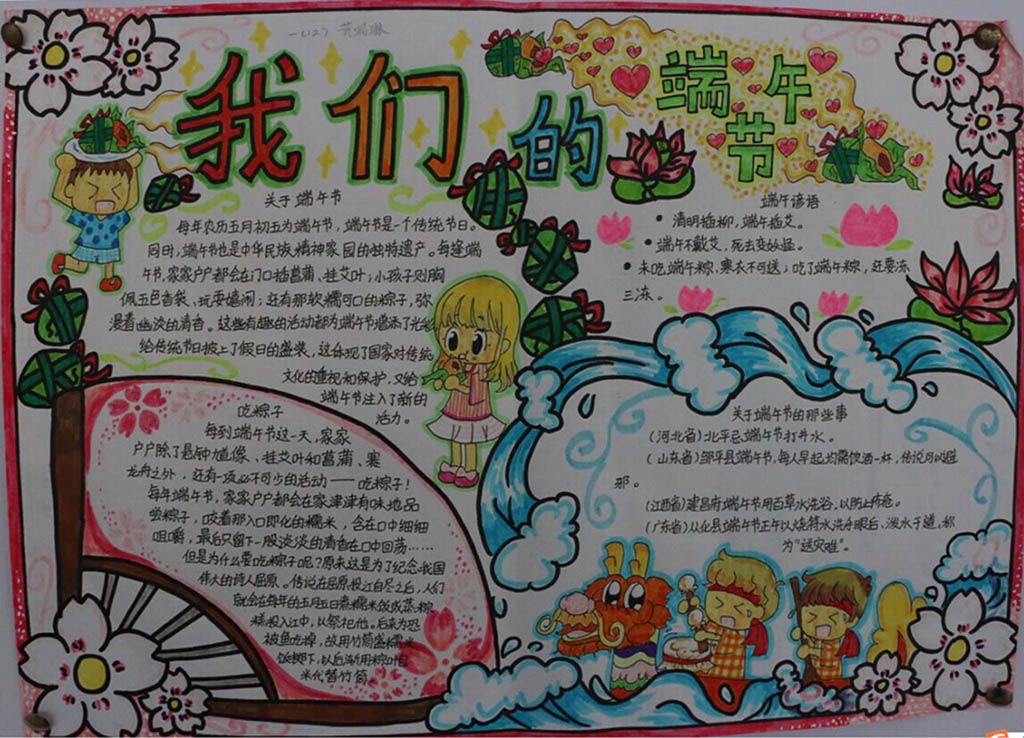 一(12) 黄
我们的
端午节
关于端午节
每年农历五月初五为端午节，端午节是一个传统节日。
同时，端午节也是中华民族精神家园的独特遗产。每逢端
午节，家家户户都会在门口插菖蒲、挂艾叶；小孩子则胸
佩五色香袋、玩耍嬉闹；还有那软糯可口的粽子，弥
漫着幽淡的清香。这些有趣的活动都为端午节增添了光彩
给传统节日披上了假日的盛装，这体现了国家对传统
文化的重视和保护，又给
端午节注入了新的
活力。
端午谚语
• 清明插柳，端午插艾。
• 端午不戴艾，死去变妖怪。
• 未吃端午粽，寒衣不可送；吃了端午粽，还要冻
三冻。
吃粽子
每到端午节这一天，家家
户户除了悬钟馗像、挂艾叶和菖蒲、赛
龙舟之外，还有一项必不可少的活动——吃粽子！
每年端午节，家家户户都会在家津津有味地品
尝粽子，咬着那入口即化的糯米，含在口中细细
咀嚼，最后只留下一股淡淡的清香在口中回荡……
但是为什么要吃粽子呢？原来这是为了纪念我国
伟大的诗人屈原。传说在屈原投江自尽之后，人们
就会在每年的五月五日煮糯米饭或蒸粽
糕投入江中，以祭祀他。后来为恐
被鱼吃掉，故用竹筒盛糯米
饭掷下，以后渐用粽叶包
米代替竹筒。
关于端午节的那些事
（河北省）北平忌端午节打井水。
（山东省）邹平县端午节，每人早起均需饮酒一杯，传说可以避
邪。
（江西省）建昌府端午节用百草水洗浴，以防止疮疥。
（广东省）从化县端午节正午以烧符水洗手眼后，泼水于道，称
为“送灾难”。